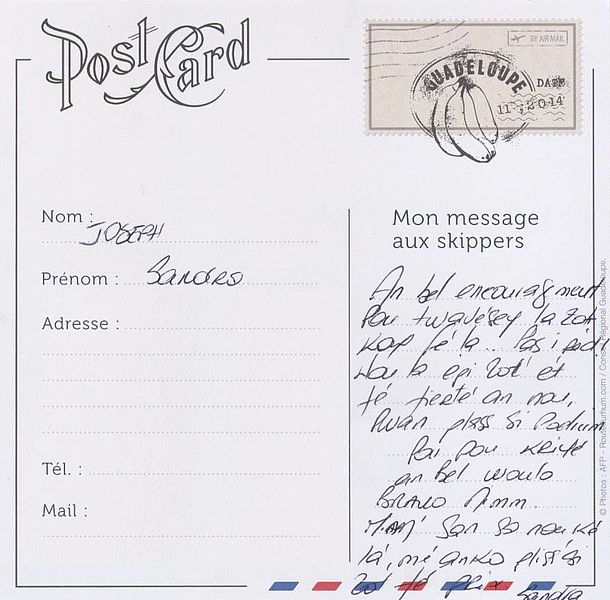 Post Card
BY AIR MAIL
GUADELOUPE
DATE
11 2014
Nom : JOSEPH
Prénom : Sandro
Adresse :
Tél. :
Mail :
Mon message
aux skippers
An bel encouragment
Pou twavèsey la zot
kay fé la .. Pas
épi zot et
fierté an nou,
Pwan plass si Podium
Pou kriyé
an bel woulo
BRAVO
Mèsi San sa nou ké
la, mé anko plis si
zot té
Sandra
© Photos : AFP - Routedurhum.com / Conseil Régional Guadeloupe.